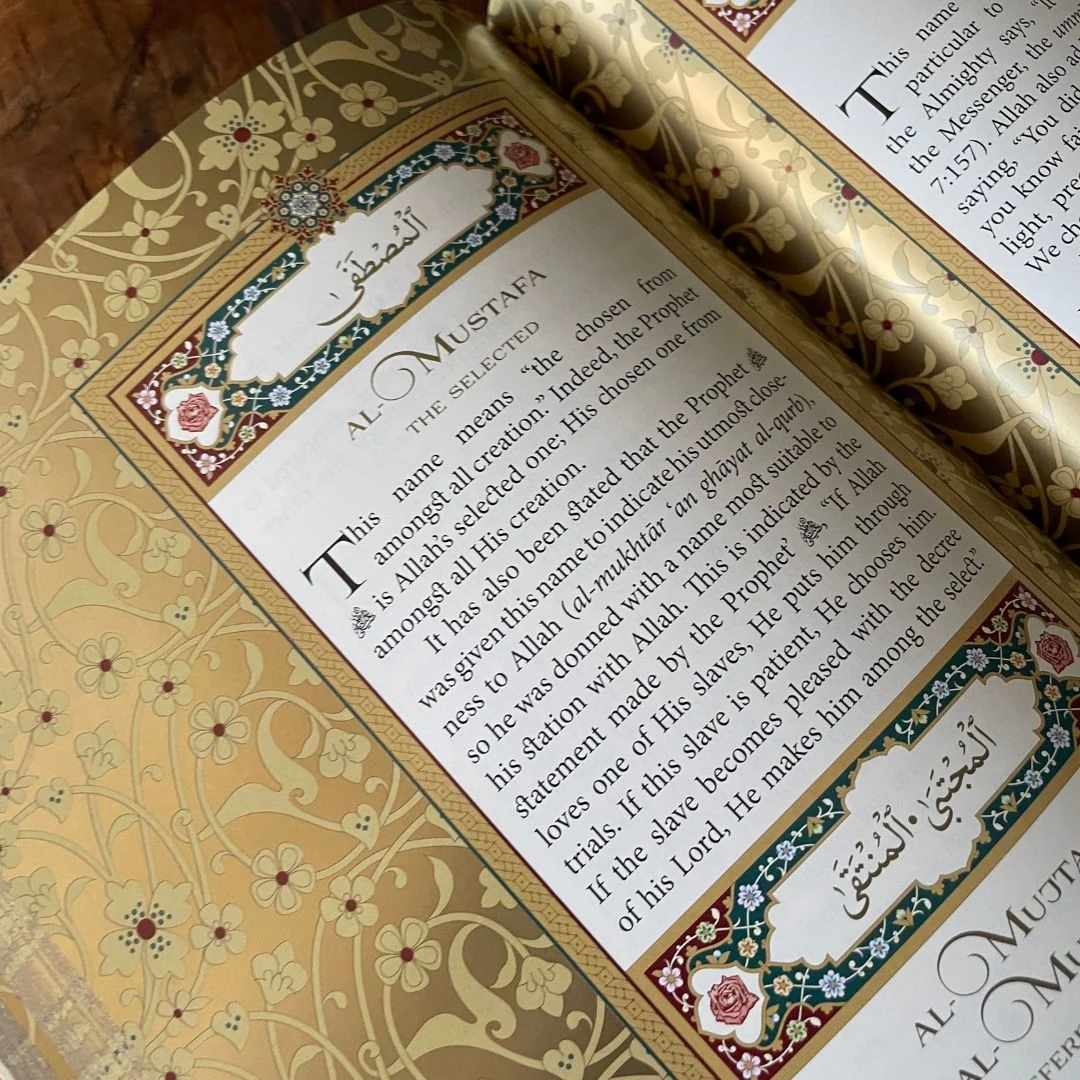 ٱلْمُصْطَفَى
AL-MUSTAFA
THE SELECTED
This name means “the chosen from
amongst all creation.” Indeed, the Prophet
ﷺ is Allah’s selected one; His chosen one from
amongst all His creation.
It has also been stated that the Prophet ﷺ
was given this name to indicate his utmost close-
ness to Allah (al-mukhtār ‘an ghāyat al-qurb),
so he was donned with a name most suitable to
his station with Allah. This is indicated by the
statement made by the Prophet ﷺ, “If Allah
loves one of His slaves, He puts him through
trials. If this slave is patient, He chooses him.
If the slave becomes pleased with the decree
of his Lord, He makes him among the select.”
ٱلْمُجْتَبَى • ٱلْمُنْتَقَى
AL-MUJTA
AL-MU
This name
particular to
the Almighty says, “
the Messenger, the umm
7:157). Allah also ad
saying, “You did
you know fai
light, pre
We ch